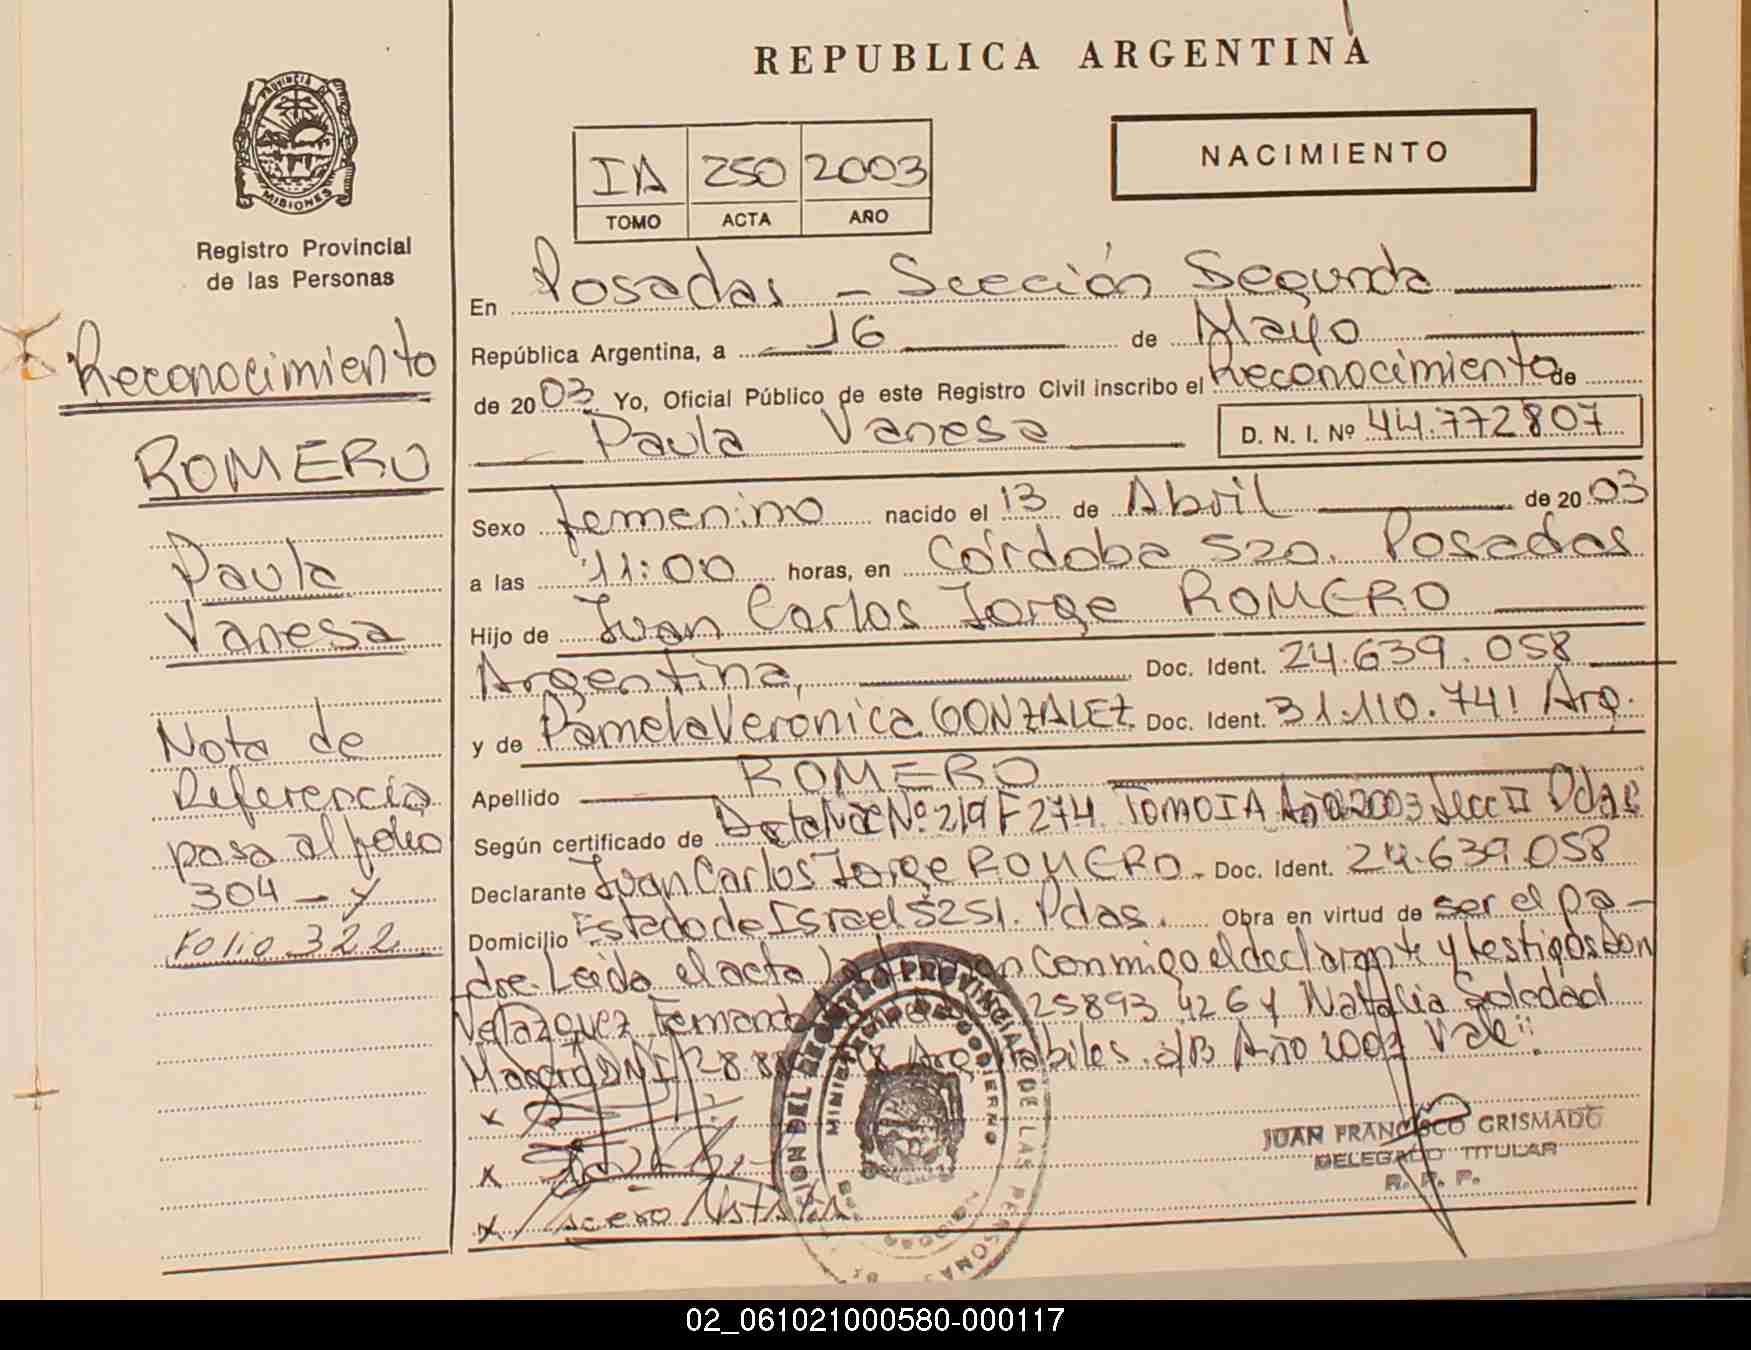 REPUBLICA ARGENTINA
PROVINCIA DE
MISIONES
Registro Provincial
de las Personas
IA 250 2003
TOMO ACTA AÑO
NACIMIENTO
Reconocimiento
ROMERO
Paula
Vanesa
Nota de
Referencia
pasa al folio
304 - y
Folio 322
En Posadas - Sección Segunda
República Argentina, a 16 de Mayo
de 2003 Yo, Oficial Público de este Registro Civil inscribo el Reconocimiento de
Paula Vanesa D. N. I. Nº 44.772807
Sexo femenino nacido el 13 de Abril de 2003
a las 11:00 horas, en Córdoba 520. Posadas
Hijo de Juan Carlos Jorge ROMERO
Argentina, Doc. Ident. 24.639.058
y de Pamela Verónica GONZALEZ Doc. Ident. 31.110.741 Arg.
Apellido ROMERO
Según certificado de Acta Nac Nº 219 F 274 TOMO IA Año 2003 Secc II Pdas
Declarante Juan Carlos Jorge ROMERO. Doc. Ident. 24.639.058
Domicilio Estado de Israel 5251. Pdas. Obra en virtud de ser el pa-
dre. Leída el acta la conmigo el declarante y testigos Don
Velazquez Fernando 25893 426 y Natalia Soledad
DNI 28.8 Arg habiles. S/B Año 2003 Vale
x
x
x Natalia
DEL REGISTRO PROVINCIAL DE LAS PERSONAS
MINISTERIO DE GOBIERNO
JUAN FRANCISCO GRISMADO
DELEGADO TITULAR
R. P. P.
02_061021000580-000117